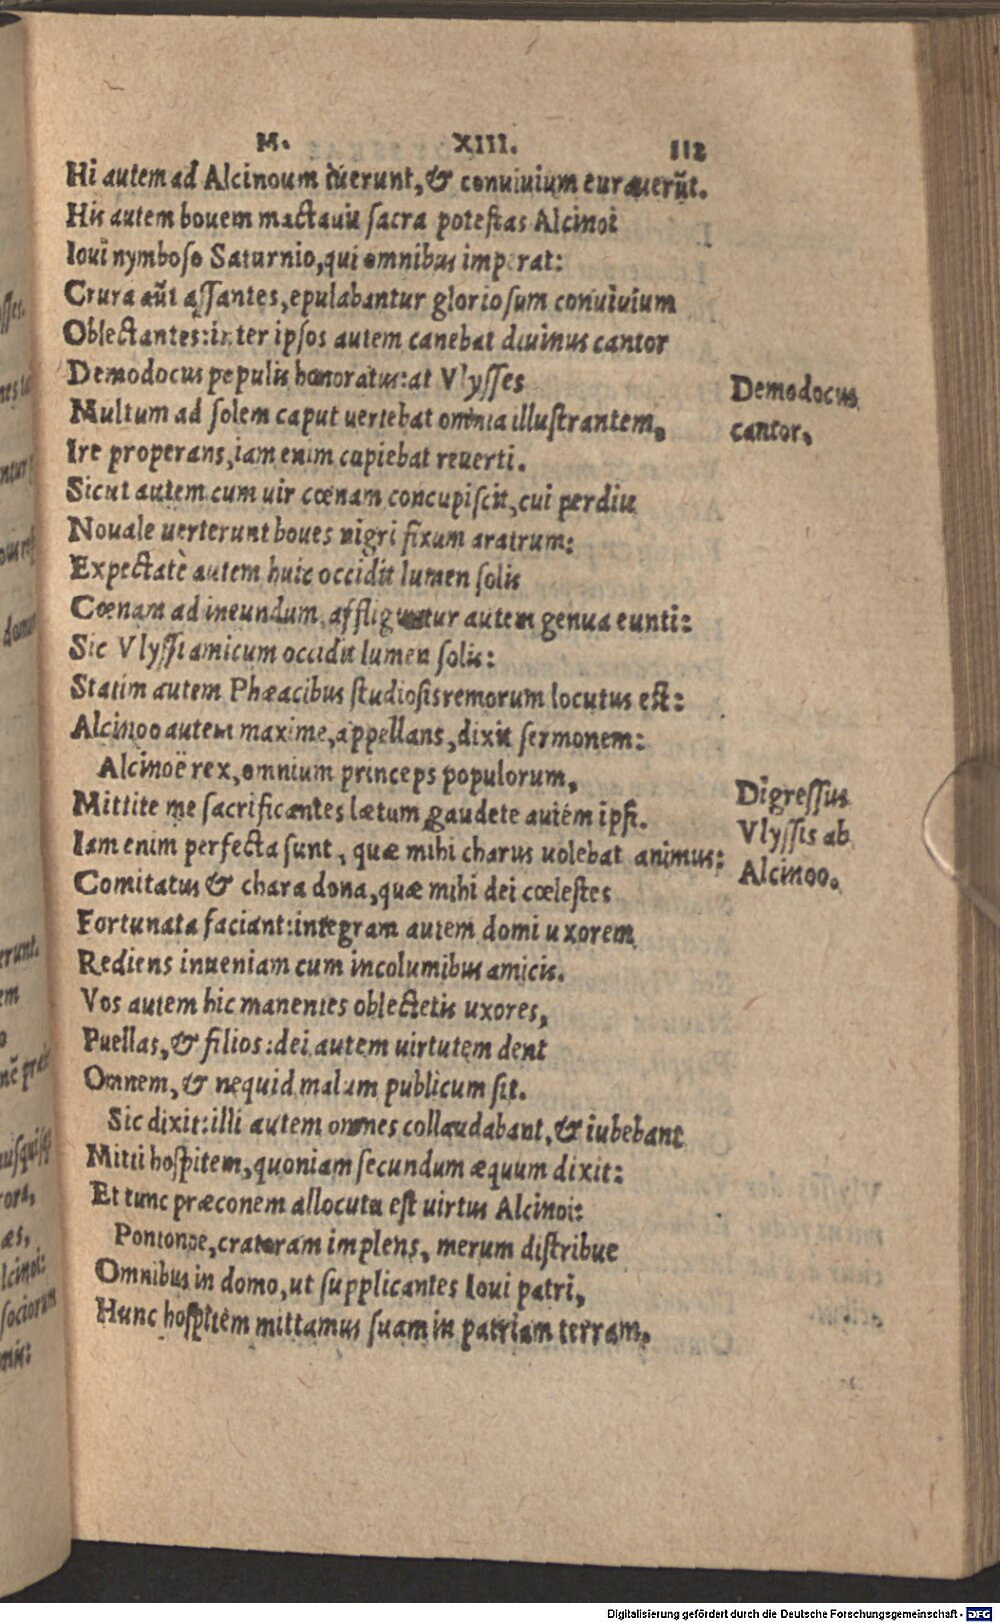 M. XIII. 112
Hi autem ad Alcinoum iuerunt, & conuiuium curauerũt.
His autem bouem mactauit sacra potestas Alcinoi
Ioui nymboso Saturnio, qui omnibus imperat:
Crura aũt assantes, epulabantur gloriosum conuiuium
Oblectantes: inter ipsos autem canebat diuinus cantor
Demodocus populis honoratus: at Vlysses
Demodocus
Multum ad solem caput uertebat omnia illustrantem,
cantor,
Ire properans, iam enim cupiebat reuerti.
Sicut autem cum uir cœnam concupiscit, cui perdiu
Nouale uerterunt boues nigri fixum aratrum:
Expectatè autem huic occidit lumen solis
Cœnam ad ineundum, affliguntur autem genua eunti:
Sic Vlyssi amicum occidit lumen solis:
Statim autem Phæacibus studiosis remorum locutus est:
Alcinoo autem maxime, appellans, dixit sermonem:
Alcinoë rex, omnium princeps populorum,
Digressus
Mittite me sacrificantes lætum, gaudete autem ipsi.
Vlyssis ab
Iam enim perfecta sunt, quæ mihi charus uolebat animus:
Alcinoo.
Comitatus & chara dona, quæ mihi dei cœlestes
Fortunata faciant: integram autem domi uxorem
Rediens inueniam cum incolumibus amicis.
Vos autem hic manentes oblectetis uxores,
Puellas, & filios: dei autem uirtutem dent
Omnem, & nequid malum publicum sit.
Sic dixit: illi autem omnes collaudabant, & iubebant
Mitti hospitem, quoniam secundum æquum dixit:
Et tunc præconem allocuta est uirtus Alcinoi:
Pontonoe, crateram implens, merum distribue
Omnibus in domo, ut supplicantes Ioui patri,
Hunc hospitem mittamus suam in patriam terram.
Digitalisierung gefördert durch die Deutsche Forschungsgemeinschaft - DFG